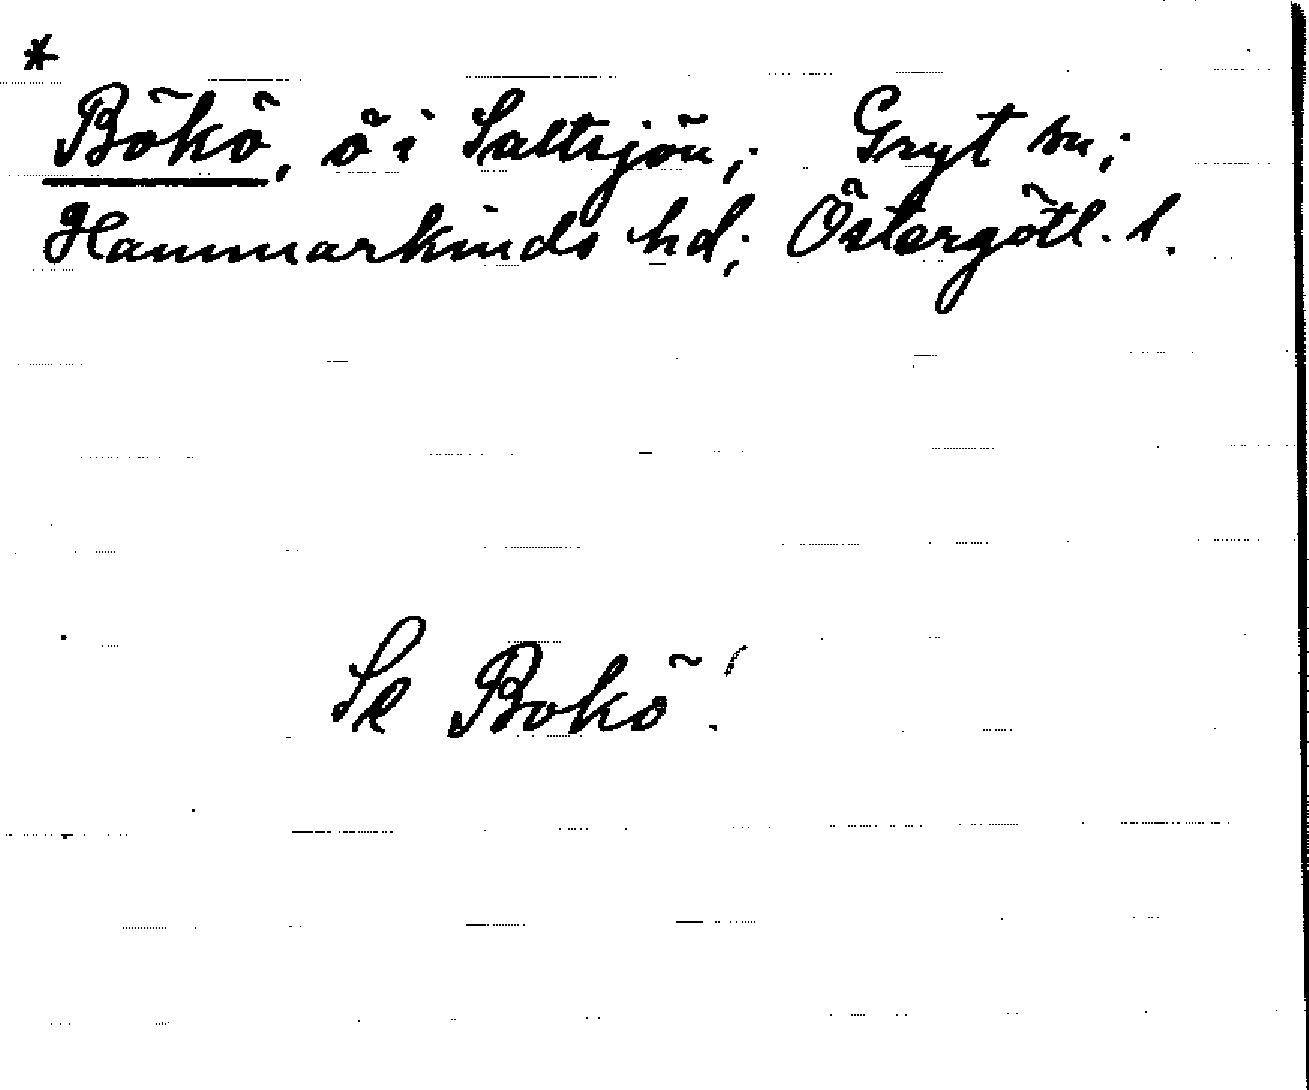 *
Bökö, ö i Saltsjön; Gryt sn;
Hammarkinds hd; Östergötl. l.
Se Bokö!